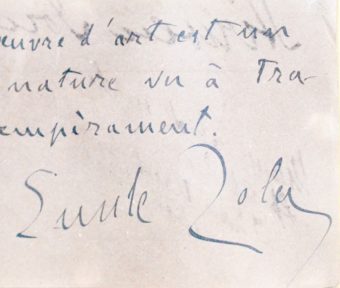 œuvre d'art est un
nature vu à Tra-
empérament.
Emile Zola